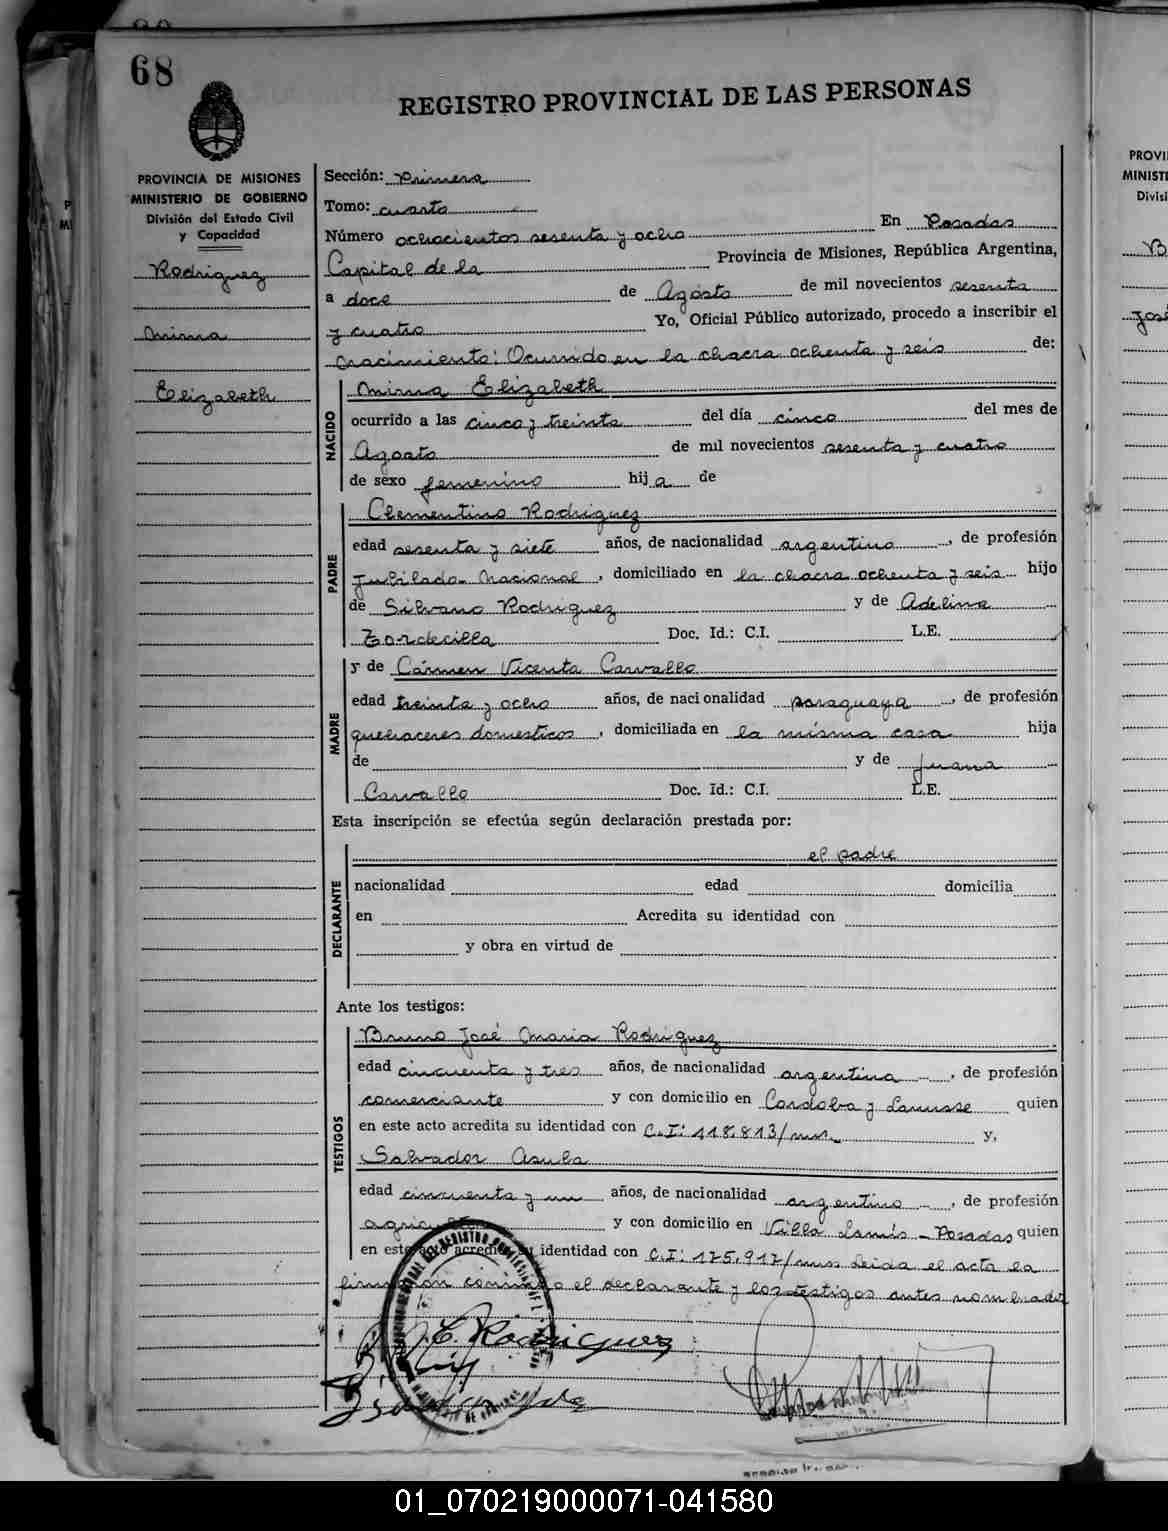 68
REGISTRO PROVINCIAL DE LAS PERSONAS
PROVINCIA DE MISIONES
MINISTERIO DE GOBIERNO
División del Estado Civil
y Capacidad
Rodriguez
Mirna
Elizabeth
Sección: Primera
Tomo: cuarto
Número ochocientos sesenta y ocho En Posadas
Capital de la Provincia de Misiones, República Argentina,
a doce de Agosto de mil novecientos sesenta
y cuatro Yo, Oficial Público autorizado, procedo a inscribir el
Nacimiento: Ocurrido en la chacra ochenta y seis de:
NACIDO
Mirna Elizabeth
ocurrido a las cinco y treinta del día cinco del mes de
Agosto de mil novecientos sesenta y cuatro
de sexo femenino hija de
PADRE
Clementino Rodriguez
edad sesenta y siete años, de nacionalidad argentino, de profesión
Jubilado Nacional, domiciliado en la chacra ochenta y seis hijo
de Silvano Rodriguez y de Adelina
Tordecilla Doc. Id.: C.I. L.E.
MADRE
y de Cármen Vicenta Carvallo
edad treinta y ocho años, de nacionalidad paraguaya, de profesión
quehaceres domesticos, domiciliada en la misma casa hija
de y de Juana
Carvallo Doc. Id.: C.I. L.E.
Esta inscripción se efectúa según declaración prestada por:
DECLARANTE
el padre
nacionalidad edad domicilia
en Acredita su identidad con
y obra en virtud de
Ante los testigos:
TESTIGOS
Bruno José Maria Rodriguez
edad cincuenta y tres años, de nacionalidad argentina, de profesión
comerciante y con domicilio en Cordoba y Lanusse quien
en este acto acredita su identidad con C.I: 118.813/mns. y,
Salvador Asula
edad cincuenta y un años, de nacionalidad argentino, de profesión
y con domicilio en Villa Lanús - Posadas quien
en este acto acredita su identidad con C.I: 175.917/mns Leida el acta la
firmaron conmigo el declarante y los testigos antes nombrados
C. Rodriguez
PROVI
MINIST
Divisi
José
01_070219000071-041580